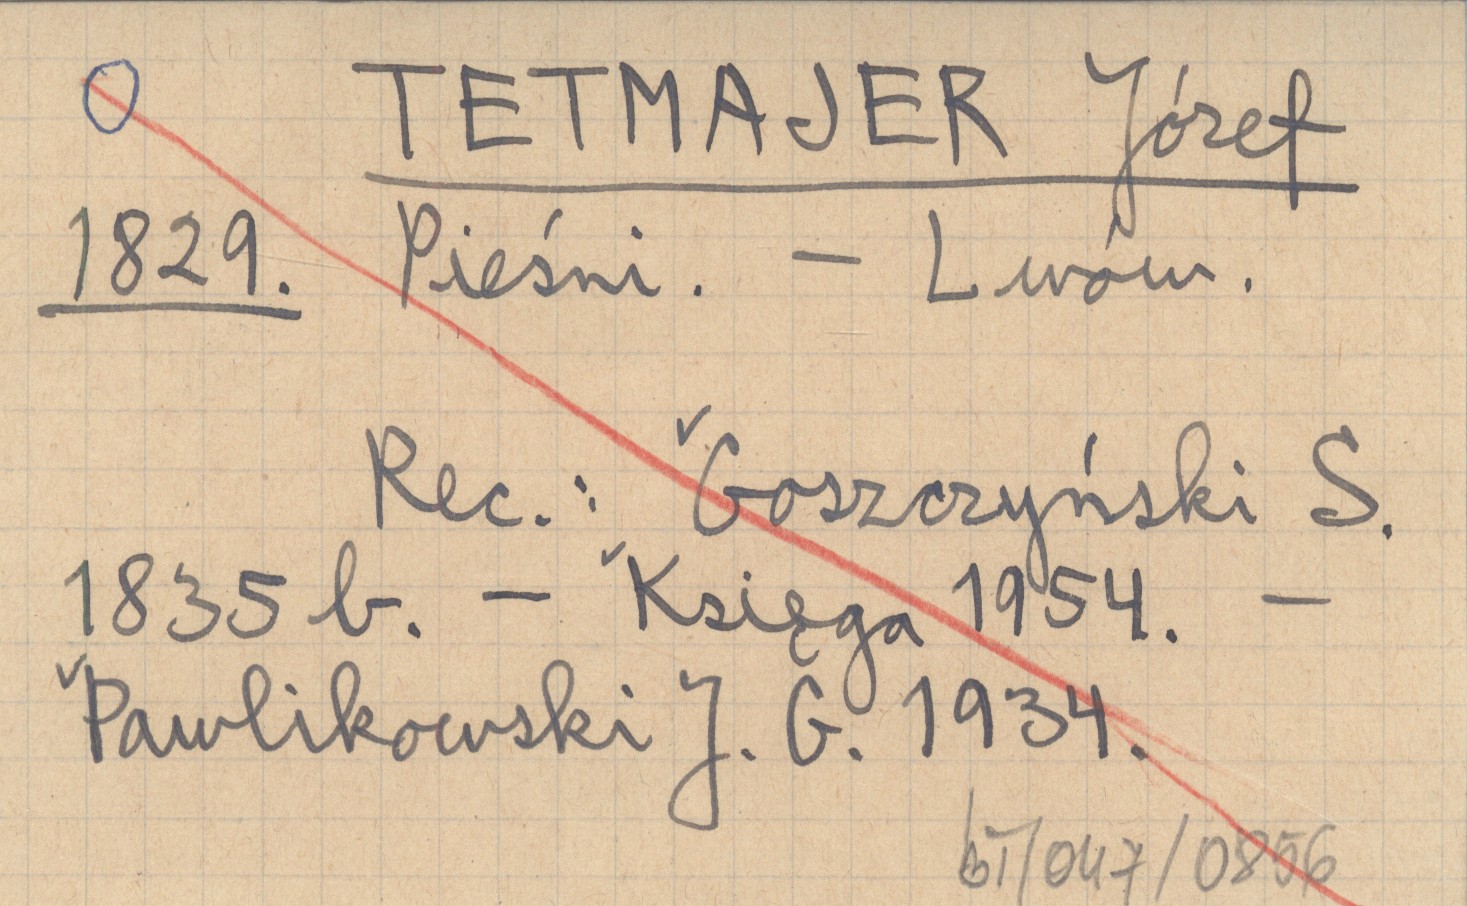 TETMAJER Józef
1829. Pieśni. – Lwów.
Rec.: ˇGoszczyński S.
1835 b. – ˇKsięga 1954. –
ˇPawlikowski J. G. 1934.
bT/047/0856